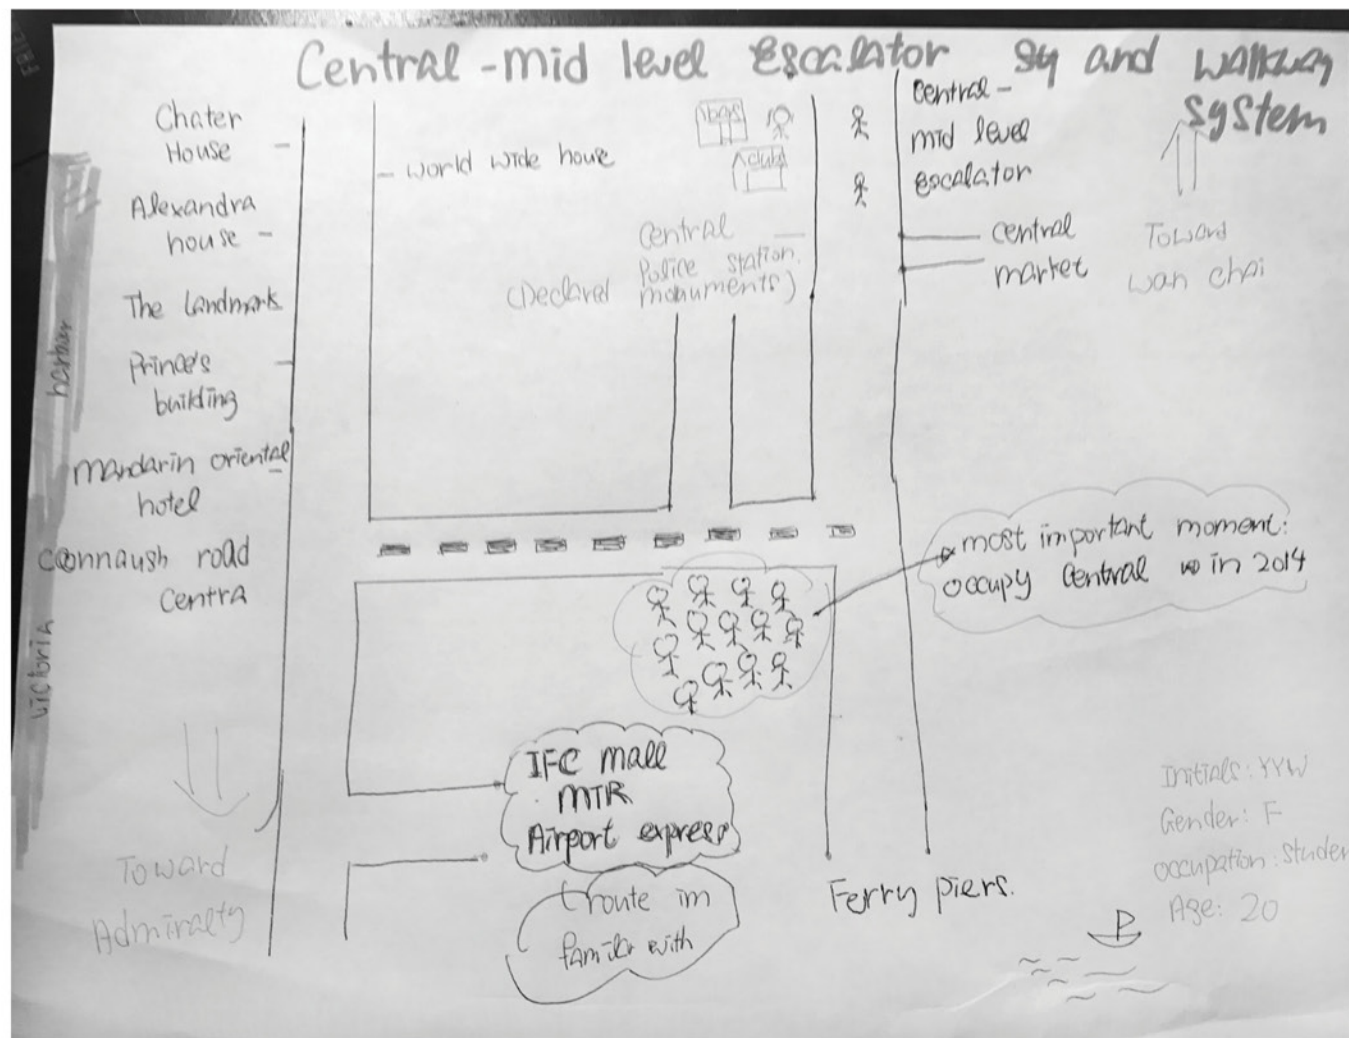 Central-mid level Escalator sy and walkway
system
Chater
House
Alexandra
house
The Landmark
Prince's
building
mandarin oriental
hotel
Connaush road
Centra
victoria harbur
Toward
Admiralty
world wide houe
bars
club
Central
Police station.
(Declared monuments)
central-
mid level
escalator
central
market
Toward
wan chai
most important moment:
occupy Central in 2014
IFC mall
MTR
Airport express
(route im
familar with
Ferry piers.
Initials: YYW
Gender: F
occupation: Studen
Age: 20